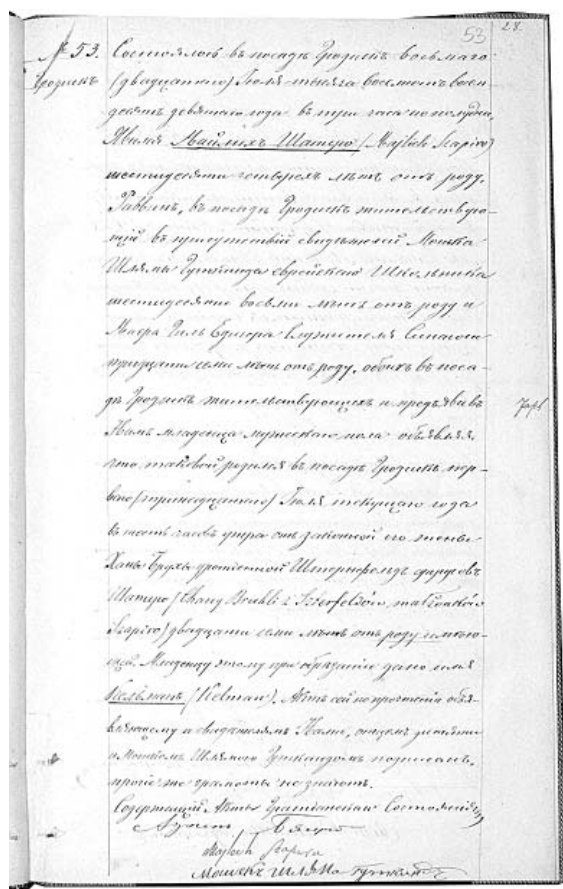 53 28.
№ 53. Состоялось въ посадѣ Гродискъ восьмаго
Гродискъ /двадцатаго/ Іюля тысяча восемьсотъ восемь
десятъ девятаго года въ три часа по полудни.
Явился Маймехъ Шапиро /Majlech Szapiro/
шестидесяти четырехъ лѣтъ отъ роду,
Раввинъ, въ посадѣ Гродискъ жительствую-
щій въ присутствіи свидѣтелей Мошка
Шлямы еврейскаго Школьника
шестидесяти восьми лѣтъ отъ роду и
служителя Синагоги
тридцати семи лѣтъ отъ роду, обоихъ въ поса-
дѣ Гродискъ жительствующихъ и предъявилъ
Намъ младенца мужескаго пола объявляя,
что таковой родился въ посадѣ Гродискъ пер-
ваго /тринадцатаго/ Іюля текущаго года
въ шесть часовъ утра отъ законной его жены
Ханы Брухи урожденной Штернфельдъ супруговъ
Шапиро /Chany Bruchli z Szterfeldów, małżonków
Szapiro/ двадцати семи лѣтъ отъ роду имѣю-
щей. Младенцу этому при обрѣзаніи дано имя
Кельманъ /Kelman/. Актъ сей по прочтеніи объя-
вляющему и свидѣтелямъ Нами, отцемъ дитяти
и Мошкомъ Шлямою Гуткиндомъ подписанъ,
прочіе же грамоты не знаютъ.
Содержащій Акты Гражданскаго Состоянія
Szapiro
Мошекъ Шляма Гуткиндъ